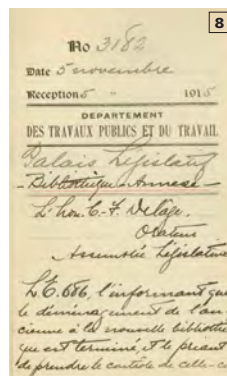 8
No 3182
Date 5 novembre
Réception 5 " 1915
DEPARTEMENT
DES TRAVAUX PUBLICS ET DU TRAVAIL
Palais Législatif
Bibliothèque - Annexe
L'hon. C.-F. Delage,
Orateur
Assemblée Législative
L.E. 686, l'informant que
le déménagement de l'an
cienne à la nouvelle bibliothè
que est terminé, et le priant
de prendre le contrôle de celle-ci